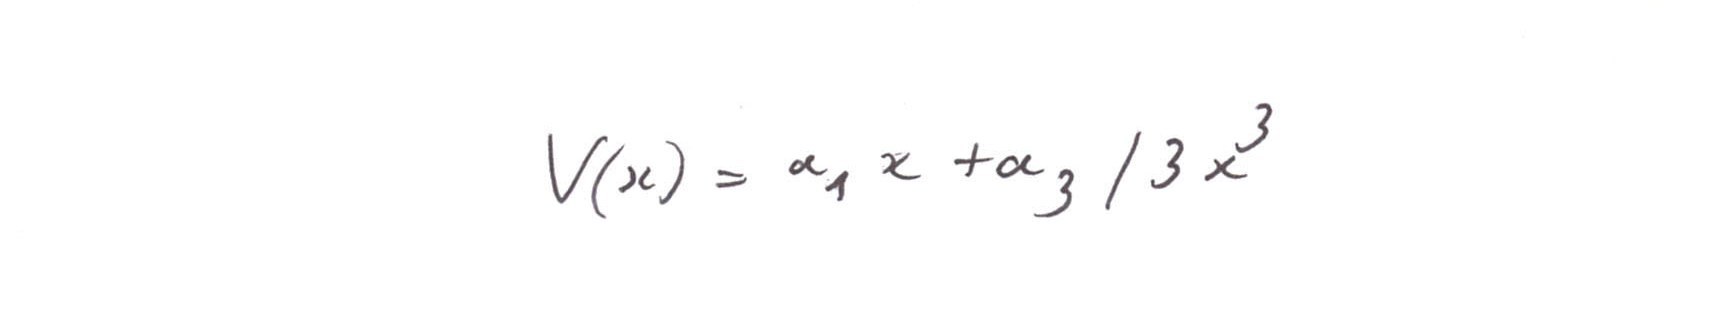 V(x) = α₁ x + α₃ / 3 x³